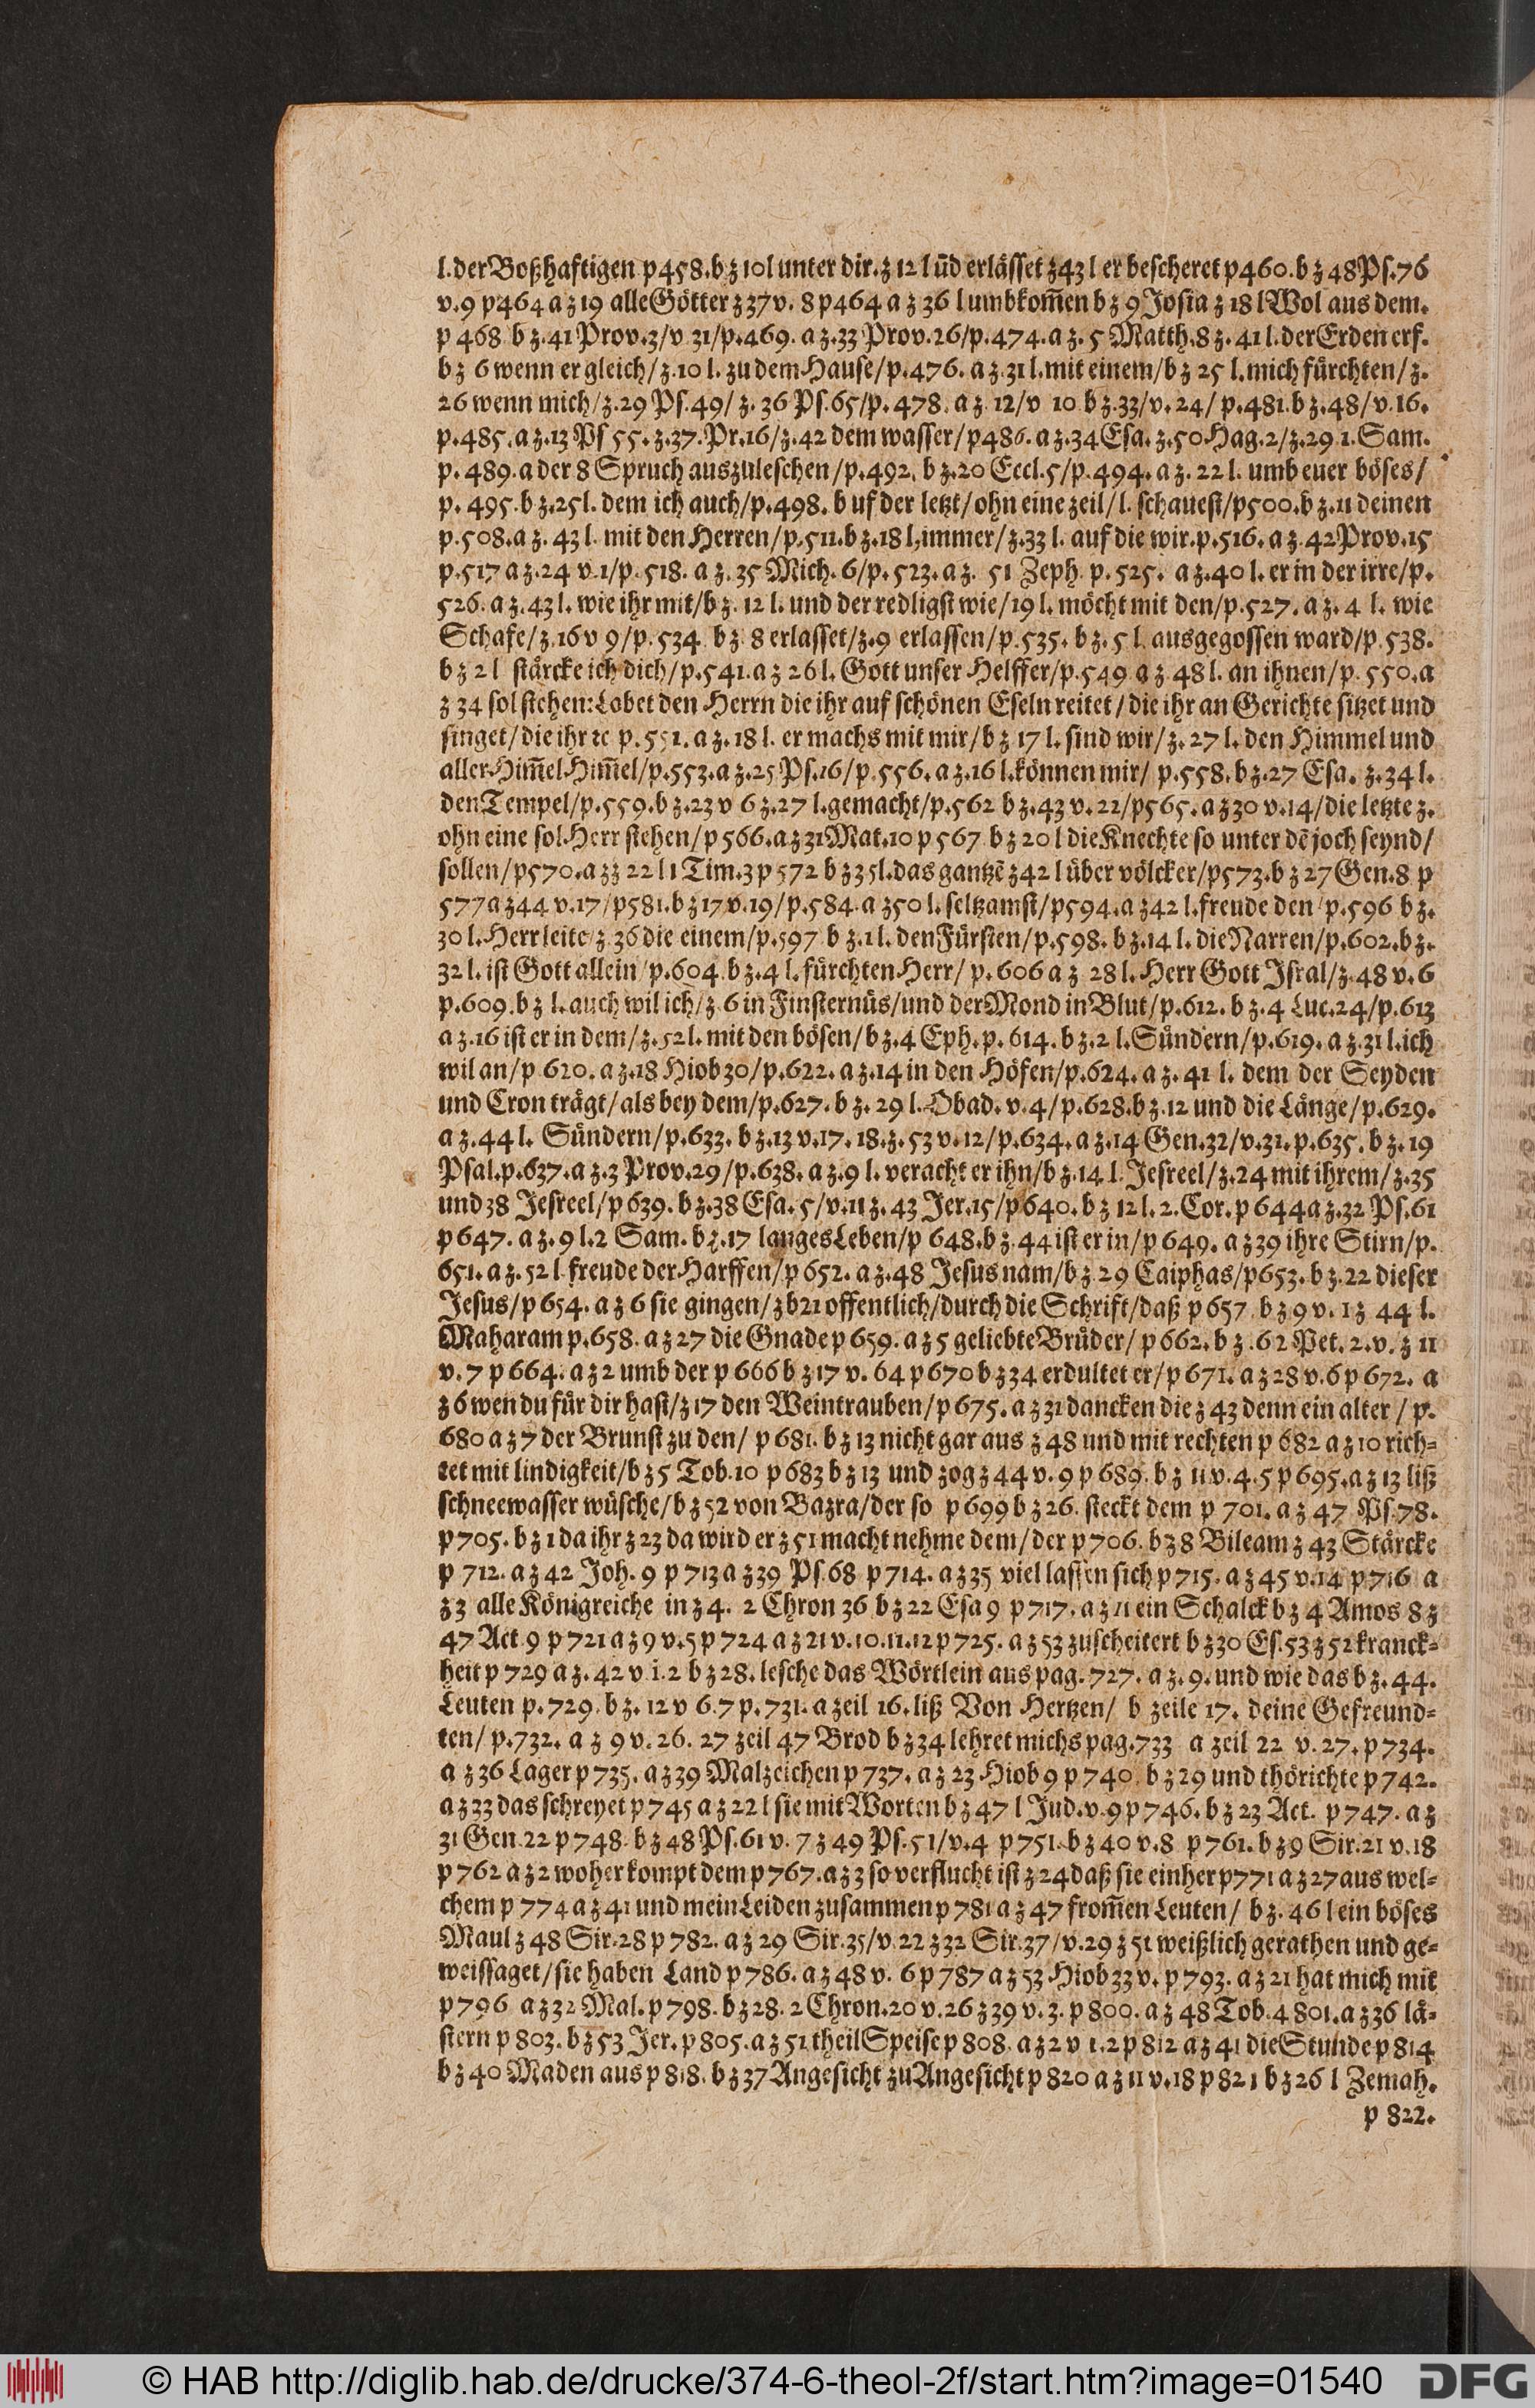 l. der Boßhaftigen p 458. b z 10 l unter dir. z 12 l uñd erlässet z 43 l er bescheret p 460. b z 48 Ps. 76
v. 9 p 464 a z 19 alle Götter z 37 v. 8 p 464 a z 36 l umbkom̃en b z 9 Josia z 18 l Wol aus dem.
p 468 b z. 41 Prov. 3/v 31/p. 469. a z. 33 Prov. 26/p. 474. a z. 5 Matth. 8 z. 41 l. der Erden erf.
b z 6 wenn er gleich/z. 10 l. zu dem Hause/p. 476. a z. 31 l. mit einem/b z 25 l. mich fürchten/z.
26 wenn mich/z. 29 Ps. 49/z. 36 Ps. 65/p. 478. a z 12/v 10 b z. 33/v. 24/p. 481. b z. 48/v. 16.
p. 485. a z. 13 Ps 55. z. 37. Pr. 16/z. 42 dem wasser/p 486. a z. 34 Esa. z. 50 Hag. 2/z. 29 1. Sam.
p. 489. a der 8 Spruch auszuleschen/p. 492. b z. 20 Eccl. 5/p. 494. a z. 22 l. umb euer böses/
p. 495. b z. 25 l. dem ich auch/p. 498. b uf der letzt/ohn eine zeil/l. schauest/p 500. b z. 11 deinen
p. 508. a z. 43 l. mit den Herren/p. 511. b z. 18 l. immer/z. 33 l. auf die wir. p. 516. a z. 42 Prov. 15
p. 517 a z. 24 v. 1/p. 518. a z. 35 Mich. 6/p. 523. a z. 51 Zeph. p. 525. a z. 40 l. er in der irre/p.
526. a z. 43 l. wie ihr mit/b z. 12 l. und der redligst wie/19 l. möcht mit den/p. 527. a z. 4 l. wie
Schafe/z. 16 v 9/p. 534 b z 8 erlasset/z. 9 erlassen/p. 535. b z. 5 l. ausgegossen ward/p. 538.
b z 2 l stärcke ich dich/p. 541. a z 26 l. Gott unser Helffer/p. 549 a z 48 l. an ihnen/p. 550. a
z 34 sol stehen: Lobet den Herrn die ihr auf schönen Eseln reitet/die ihr an Gerichte sitzet und
singet/die ihr ꝛc p. 551. a z. 18 l. er machs mit mir/b z 17 l. sind wir/z. 27 l. den Himmel und
aller Him̃el Him̃el/p. 553. a z. 25 Ps. 16/p. 556. a z. 16 l. können mir/p. 558. b z. 27 Esa. z. 34 l.
den Tempel/p. 559. b z. 23 v 6 z. 27 l. gemacht/p. 562 b z. 43 v. 22/p 565. a z 30 v. 14/die letzte z.
ohn eine sol Herr stehen/p 566. a z 31 Mat. 10 p 567 b z 20 l die Knechte so unter dẽ joch seynd/
sollen/p 570. a z z 22 l 1 Tim. 3 p 572 b z 35 l. das gantzẽ z 42 l über völcker/p 573. b z 27 Gen. 8 p
577 a z 44 v. 17/p 581. b z 17 v. 19/p. 584. a z 50 l. seltzamst/p 594. a z 42 l. freude den/p. 596 b z.
30 l. Herr leite/z 36 die einem/p. 597 b z. 1 l. den Fürsten/p. 598. b z. 14 l. die Narren/p. 602. b z.
32 l. ist Gott allein/p. 604. b z. 4 l. fürchten Herr/p. 606 a z 28 l. Herr Gott Isral/z. 48 v. 6
p. 609. b z l. auch wil ich/z 6 in Finsternüs/und der Mond in Blut/p. 612. b z. 4 Luc. 24/p. 613
a z. 16 ist er in dem/z. 52 l. mit den bösen/b z. 4 Eph. p. 614. b z. 2 l. Sündern/p. 619. a z. 31 l. ich
wil an/p 620. a z. 18 Hiob 30/p. 622. a z. 14 in den Höfen/p. 624. a z. 41 l. dem der Seyden
und Cron trägt/als bey dem/p. 627. b z. 29 l. Obad. v. 4/p. 628. b z. 12 und die Länge/p. 629.
a z. 44 l. Sündern/p. 633. b z. 13 v. 17. 18. z. 53 v. 12/p. 634. a z. 14 Gen. 32/v. 31. p. 635. b z. 19
Psal. p. 637. a z. 3 Prov. 29/p. 638. a z. 9 l. veracht er ihn/b z. 14 l. Jesreel/z. 24 mit ihrem/z. 35
und 38 Jesreel/p 639. b z. 38 Esa. 5/v. 11 z. 43 Jer. 15/p 640. b z 12 l. 2. Cor. p 644 a z. 32 Ps. 61
p 647. a z. 9 l. 2 Sam. b z. 17 langes Leben/p 648. b z. 44 ist er in/p 649. a z 39 ihre Stirn/p.
651. a z. 52 l freude der Harffen/p 652. a z. 48 Jesus nam/b z 29 Caiphas/p 653. b z. 22 dieser
Jesus/p 654. a z 6 sie gingen/z b 21 offentlich/durch die Schrift/daß p 657 b z 9 v. 1 z 44 l.
Maharam p. 658. a z 27 die Gnade p 659. a z 5 geliebte Brüder/p 662. b z. 6 2 Pet. 2. v. z 11
v. 7 p 664. a z 2 umb der p 666 b z 17 v. 64 p 670 b z 34 erdultet er/p 671. a z 28 v. 6 p 672. a
z 6 wen du für dir hast/z 17 den Weintrauben/p 675. a z 31 dancken die z 43 denn ein alter/p.
680 a z 7 der Brunst zu den/p 681. b z 13 nicht gar aus z 48 und mit rechten p 682 a z 10 rich-
tet mit lindigkeit/b z 5 Tob. 10 p 683 b z 13 und zog z 44 v. 9 p 689. b z 11 v. 4. 5 p 695. a z 13 liß
schneewasser wüsche/b z 52 von Bazra/der so p 699 b z 26. steckt dem p 701. a z 47 Ps. 78.
p 705. b z 1 da ihr z 23 da wird er z 51 macht nehme dem/der p 706. b z 8 Bileam z 43 Stärcke
p 712. a z 42 Joh. 9 p 713 a z 39 Ps. 68 p 714. a z 35 viel lassen sich p 715. a z 45 v. 14 p 716 a
z 3 alle Königreiche in z 4. 2 Chron 36 b z 22 Esa 9 p 717. a z 11 ein Schalck b z 4 Amos 8 z
47 Act 9 p 721 a z 9 v. 5 p 724 a z 21 v. 10. 11. 12 p 725. a z 53 zuscheitert b z 30 Es. 53 z 52 kranck-
heit p 729 a z. 42 v. 1. 2 b z 28. lesche das Wörtlein aus pag. 727. a z. 9. und wie das b z. 44.
Leuten p. 729. b z. 12 v 6. 7 p. 731. a zeil 16. liß Von Hertzen/ b zeile 17. deine Gefreund-
ten/p. 732. a z 9 v. 26. 27 zeil 47 Brod b z 34 lehret michs pag. 733 a zeil 22 v. 27. p 734.
a z 36 Lager p 735. a z 39 Malzeichen p 737. a z 23 Hiob 9 p 740. b z 29 und thörichte p 742.
a z 33 das schreyet p 745 a z 22 l sie mit Worten b z 47 l Jud. v. 9 p 746. b z 23 Act. p 747. a z
31 Gen. 22 p 748. b z 48 Ps. 61 v. 7 z 49 Ps. 51/v. 4 p 751. b z 40 v. 8 p 761. b z 9 Sir. 21 v. 18
p 762 a z 2 woher kompt dem p 767. a z 3 so verflucht ist z 24 daß sie einher p 771 a z 27 aus wel-
chem p 774 a z 41 und mein Leiden zusammen p 781 a z 47 from̃en Leuten/ b z. 46 l ein böses
Maul z 48 Sir. 28 p 782. a z 29 Sir. 35/v. 22 z 32 Sir. 37/v. 29 z 51 weißlich gerathen und ge-
weissaget/sie haben Land p 786. a z 48 v. 6 p 787 a z 53 Hiob 33 v. p 793. a z 21 hat mich mit
p 796 a z 32 Mal. p 798. b z 28. 2 Chron. 20 v. 26 z 39 v. 3. p 800. a z 48 Tob. 4 801. a z 36 lä-
stern p 803. b z 53 Jer. p 805. a z 51 theil Speise p 808. a z 2 v 1. 2 p 812 a z 41 die Stunde p 814
b z 40 Maden aus p 818. b z 37 Angesicht zu Angesicht p 820 a z 11 v. 18 p 821 b z 26 l Zemah.
p 822.
© HAB http://diglib.hab.de/drucke/374-6-theol-2f/start.htm?image=01540 DFG